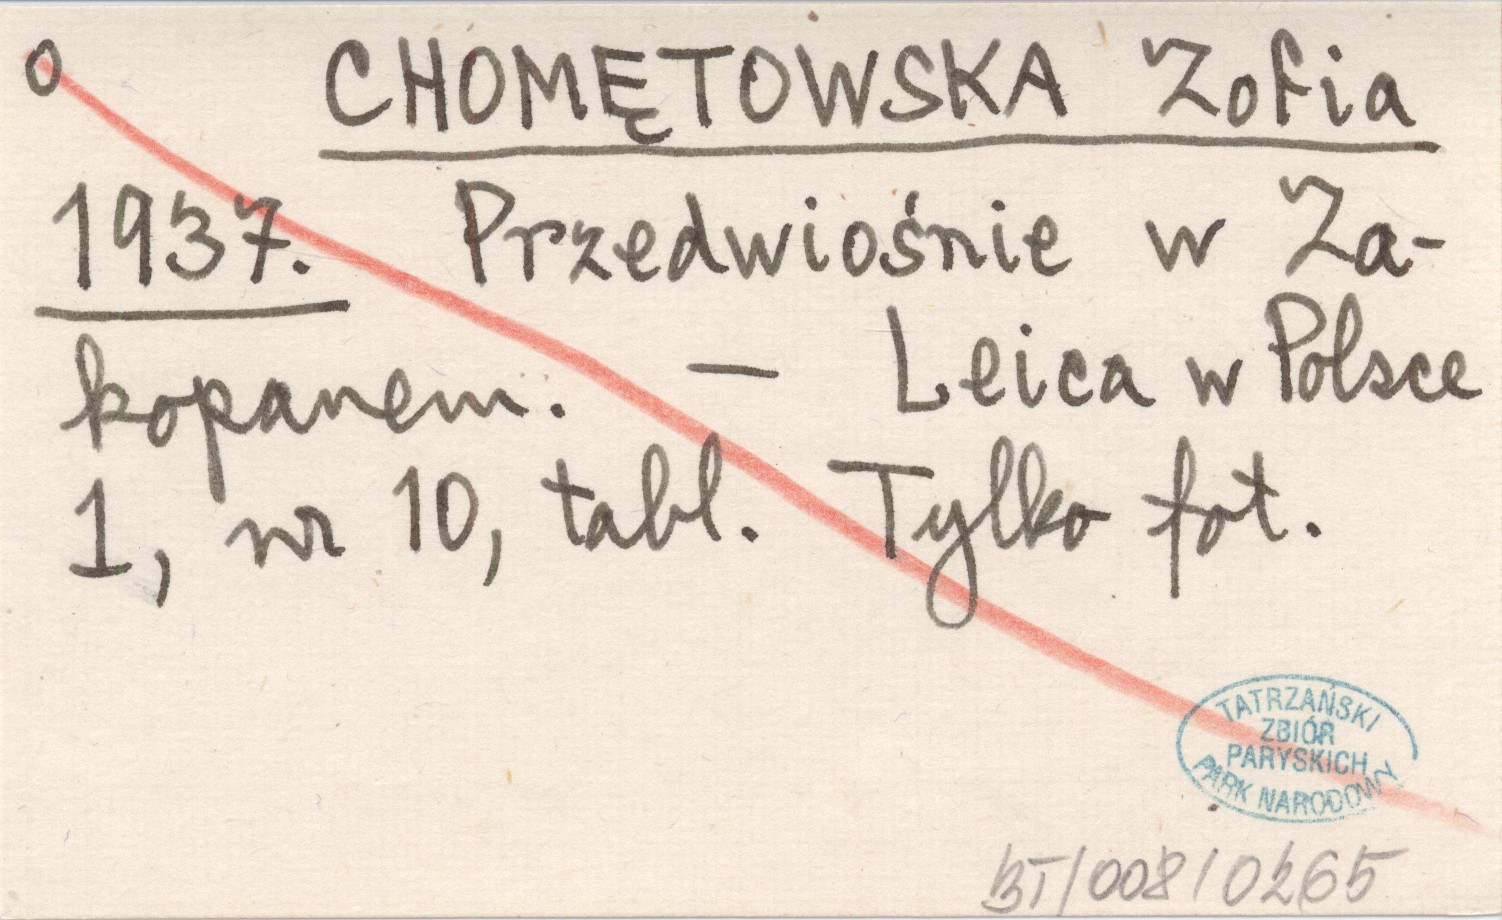 o CHOMĘTOWSKA Zofia
1937. Przedwiośnie w Za-
kopanem. — Leica w Polsce
1, nr 10, tabl. Tylko fot.
TATRZAŃSKI
ZBIÓR
PARYSKICH
PARK NARODOWY
BT/008/0265